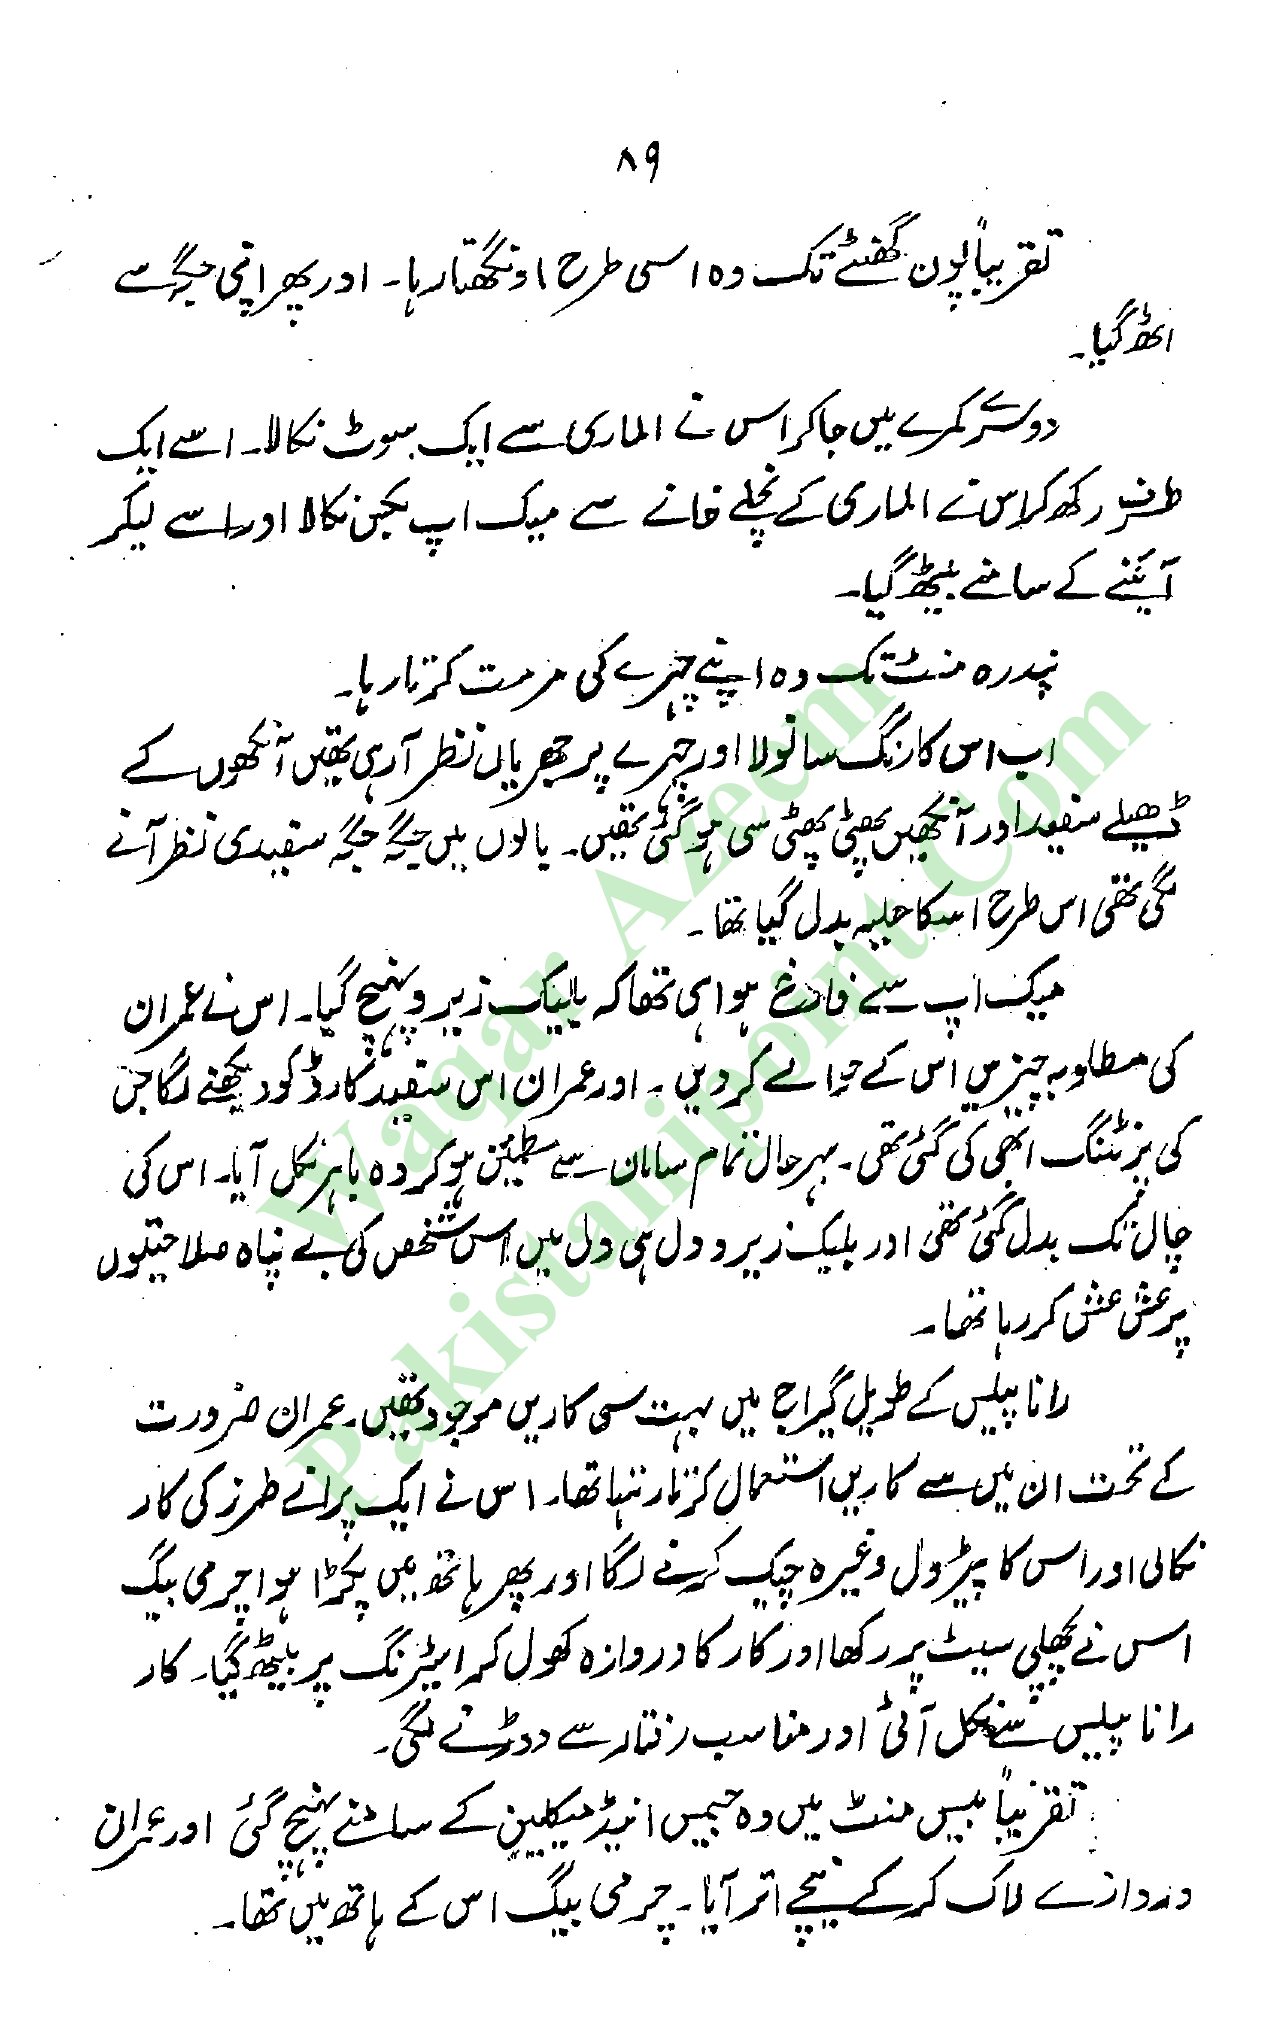 ۸۹
تقریباً پون گھنٹے تک وہ اسی طرح اونگھتا رہا۔ اور پھر اپنی جگہ سے
اٹھ گیا۔
دوسرے کمرے میں جا کر اس نے الماری سے ایک سوٹ نکالا۔ اسے ایک
طرف رکھ کر اس نے الماری کے نچلے خانے سے میک اپ بکس نکالا اور اسے لیکر
آئینے کے سامنے بیٹھ گیا۔
پندرہ منٹ تک وہ اپنے چہرے کی مرمت کرتا رہا۔
اب اس کا رنگ سانولا اور چہرے پر جھریاں نظر آ رہی تھیں آنکھوں کے
ڈھیلے سفید اور آنکھیں پھٹی پھٹی سی ہو گئی تھیں۔ بالوں میں جگہ جگہ سفیدی نظر آنے
لگی تھی اس طرح اسکا حلیہ بدل گیا تھا۔
میک اپ سے فارغ ہوا ہی تھا کہ بلیک زیرو پہنچ گیا۔ اس نے عمران
کی مطلوبہ چیزیں اس کے حوالے کر دیں۔ اور عمران اس سفید کارڈ کو دیکھنے لگا جس
کی پرنٹنگ ابھی کی گئی تھی۔ بہر حال تمام سامان سے مطمئن ہو کر وہ باہر نکل آیا۔ اس کی
چال تک بدل گئی تھی اور بلیک زیرو دل ہی دل میں اس شخص کی بے پناہ صلاحیتوں
پر عش عش کر رہا تھا۔
رانا پیلس کے طویل گیراج میں بہت سی کاریں موجود تھیں۔ عمران ضرورت
کے تحت ان میں سے کاریں استعمال کرتا رہتا تھا۔ اس نے ایک پرانے طرز کی کار
نکالی اور اس کا پیٹرول وغیرہ چیک کرنے لگا اور پھر ہاتھ میں پکڑا ہوا چرمی بیگ
اس نے پچھلی سیٹ پر رکھا اور کار کا دروازہ کھول کر اسٹیرنگ پر بیٹھ گیا۔ کار
رانا پیلس سے نکل آئی اور مناسب رفتار سے دوڑنے لگی۔
تقریباً بیس منٹ میں وہ جیمس اینڈ میکلین کے سامنے پہنچ گئی اور عمران
دروازے لاک کر کے نیچے اتر آیا۔ چرمی بیگ اس کے ہاتھ میں تھا۔
Waqar Azeem
Pakistanipoint.Com